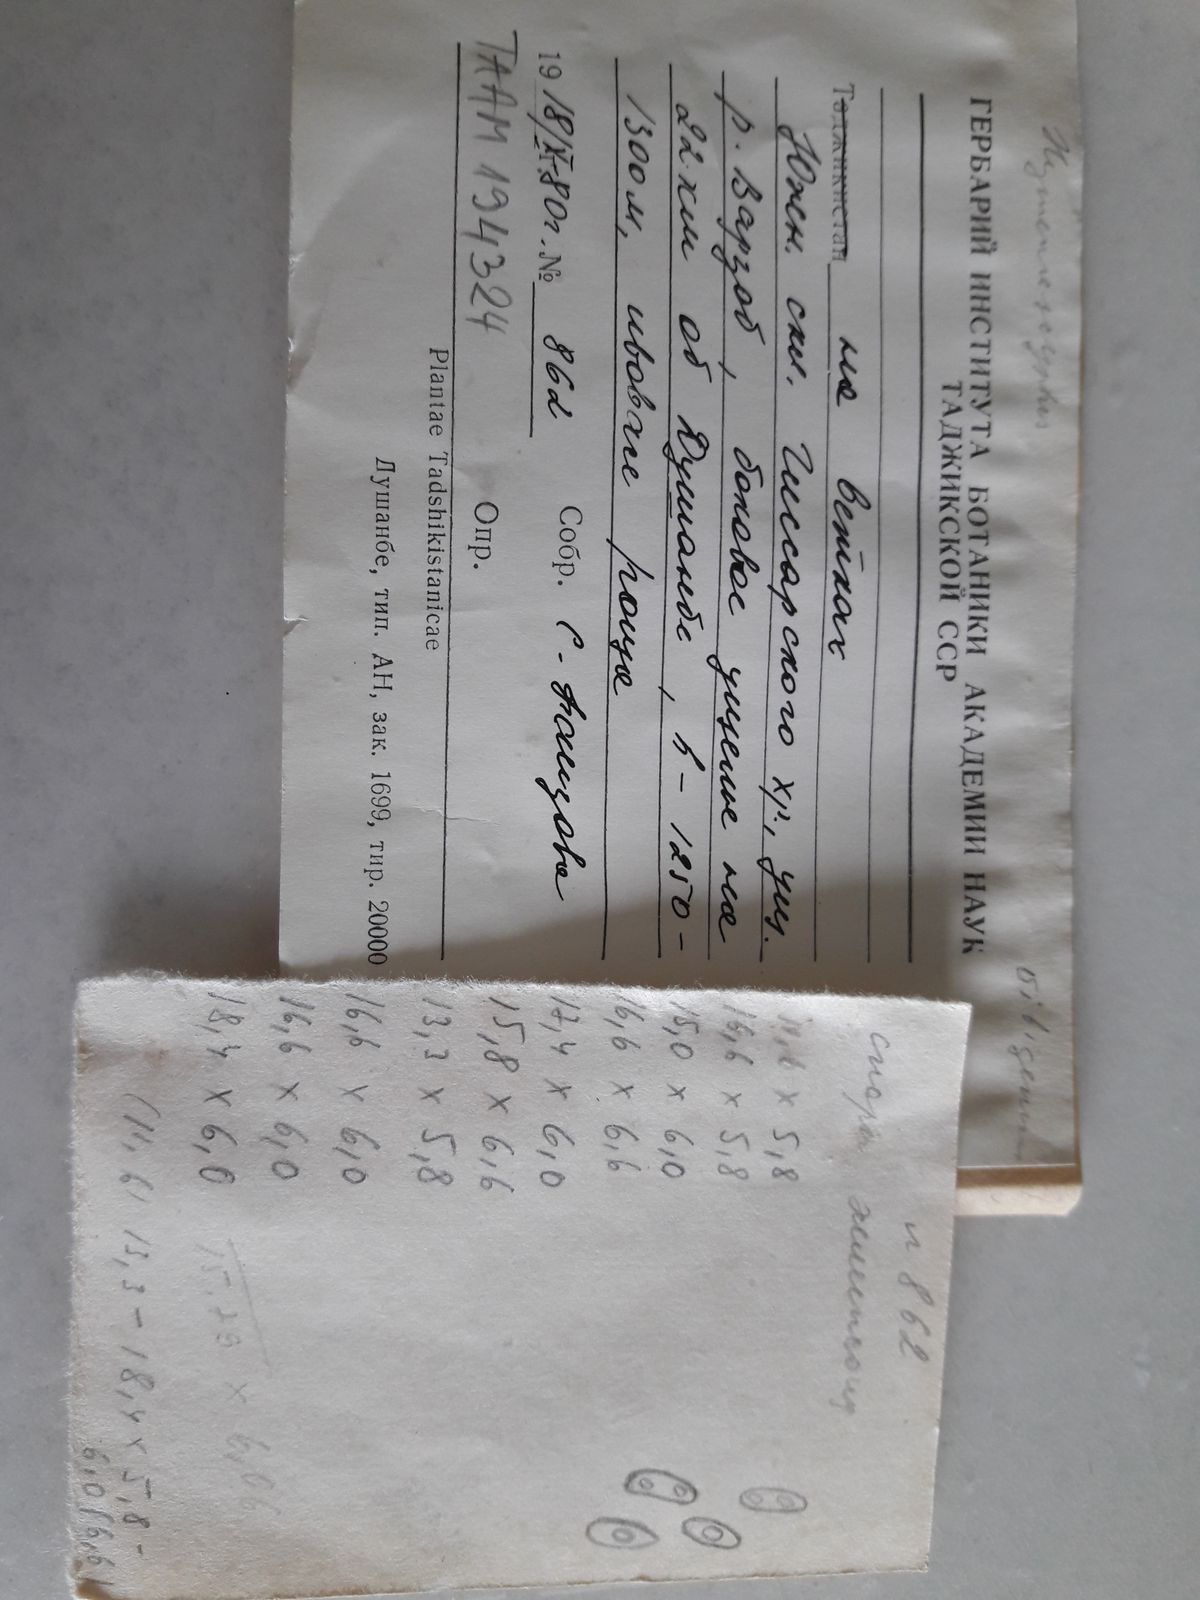 ГЕРБАРИЙ ИНСТИТУТА БОТАНИКИ АКАДЕМИИ НАУК
ТАДЖИКСКОЙ ССР
Таджикистан на ветках
Южн. скл. Гиссарского хр., ущ.
р. Варзоб, боковое ущелье на
22 км от Душанбе, h - 1250-
1300 м, ивовые роща
19 18/X-80г. № 862 Собр. С.
TAAM 194324 Опр.
Plantae Tadshikistanicae
Душанбе, тип. АН, зак. 1699, тир. 20000
№ 862
споры
x 5,8
16,6 x 5,8
15,0 x 6,0
16,6 x 6,6
17,4 x 6,0
15,8 x 6,6
13,3 x 5,8
16,6 x 6,0
16,6 x 6,0
18,4 x 6,0
15,79 x 6,06
(11,6) 13,3 - 18,4 x 5,8 -
6,0 (6,6)